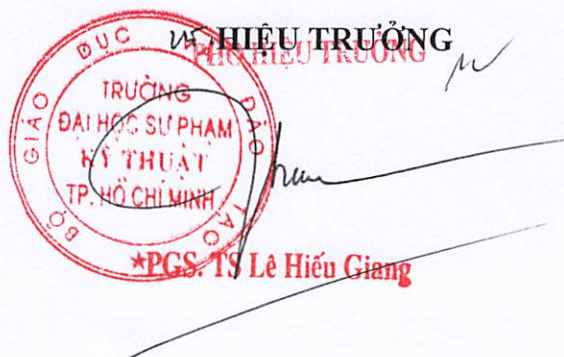 HIỆU TRƯỞNG
PHÓ HIỆU TRƯỞNG
BỘ GIÁO DỤC ĐÀO TẠO
TRƯỜNG
ĐẠI HỌC SƯ PHẠM
KỸ THUẬT
TP. HỒ CHÍ MINH
*PGS. TS Lê Hiếu Giang